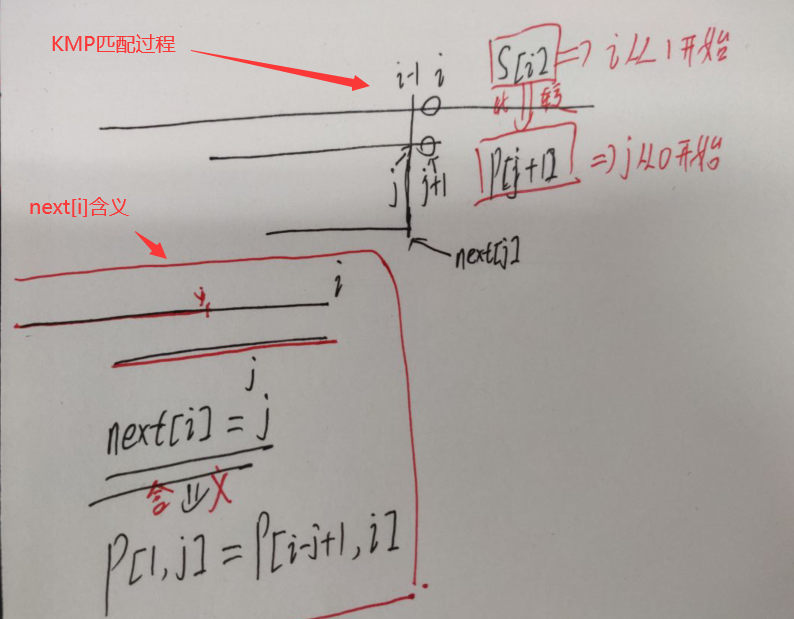 KMP匹配过程
i-1 i
S[i] => i从1开始
比较
j j+1
P[j+1] => j从0开始
next[j]
next[i]含义
j
i
j
next[i] = j
含义
P[1,j] = P[i-j+1,i]